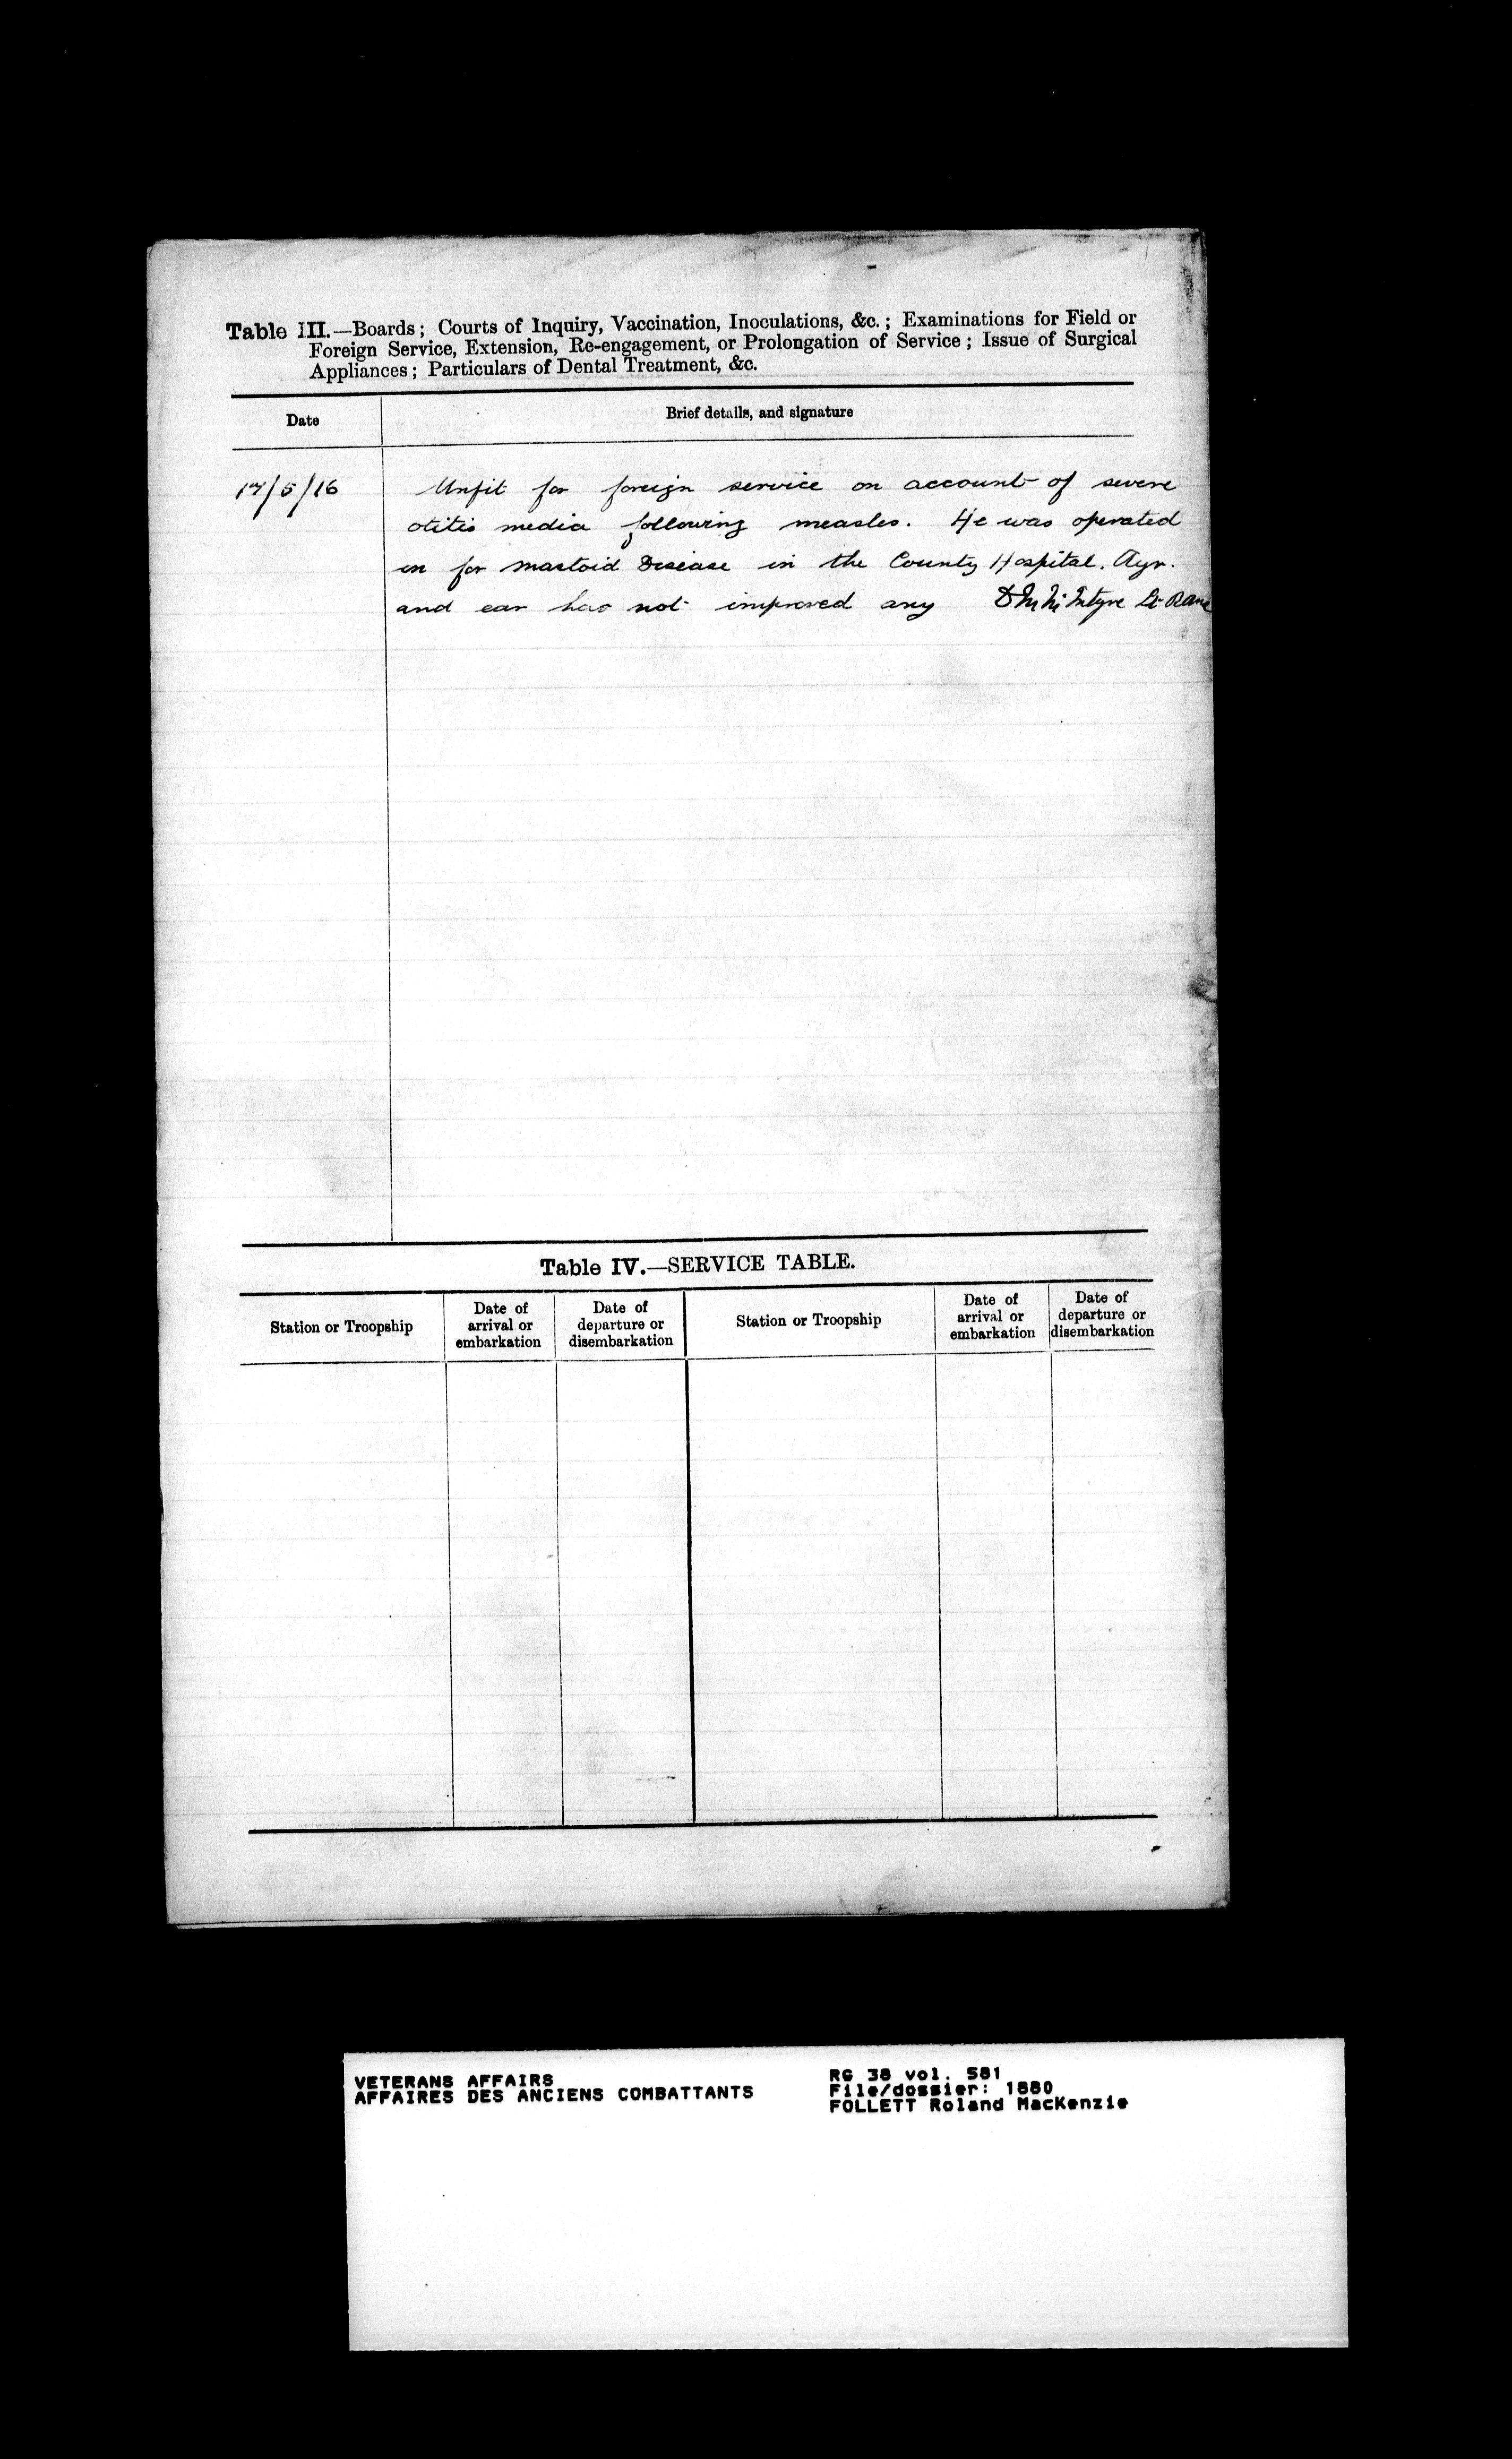 Table III.—Boards; Courts of Inquiry, Vaccination, Inoculations, &c.; Examinations for Field or
Foreign Service, Extension, Re-engagement, or Prolongation of Service; Issue of Surgical
Appliances; Particulars of Dental Treatment, &c.
Date
Brief details, and signature
17/5/16
Unfit for foreign service on account of severe
otitis media following measles. He was operated
on for mastoid Disease in the County Hospital. Ayr.
and ear has not improved any McIntyre Lt RAMC
Table IV.—SERVICE TABLE.
Station or Troopship
Date of
arrival or
embarkation
Date of
departure or
disembarkation
Station or Troopship
Date of
arrival or
embarkation
Date of
departure or
disembarkation
VETERANS AFFAIRS
AFFAIRES DES ANCIENS COMBATTANTS
RG 38 vol. 581
File/dossier: 1880
FOLLETT Roland MacKenzie